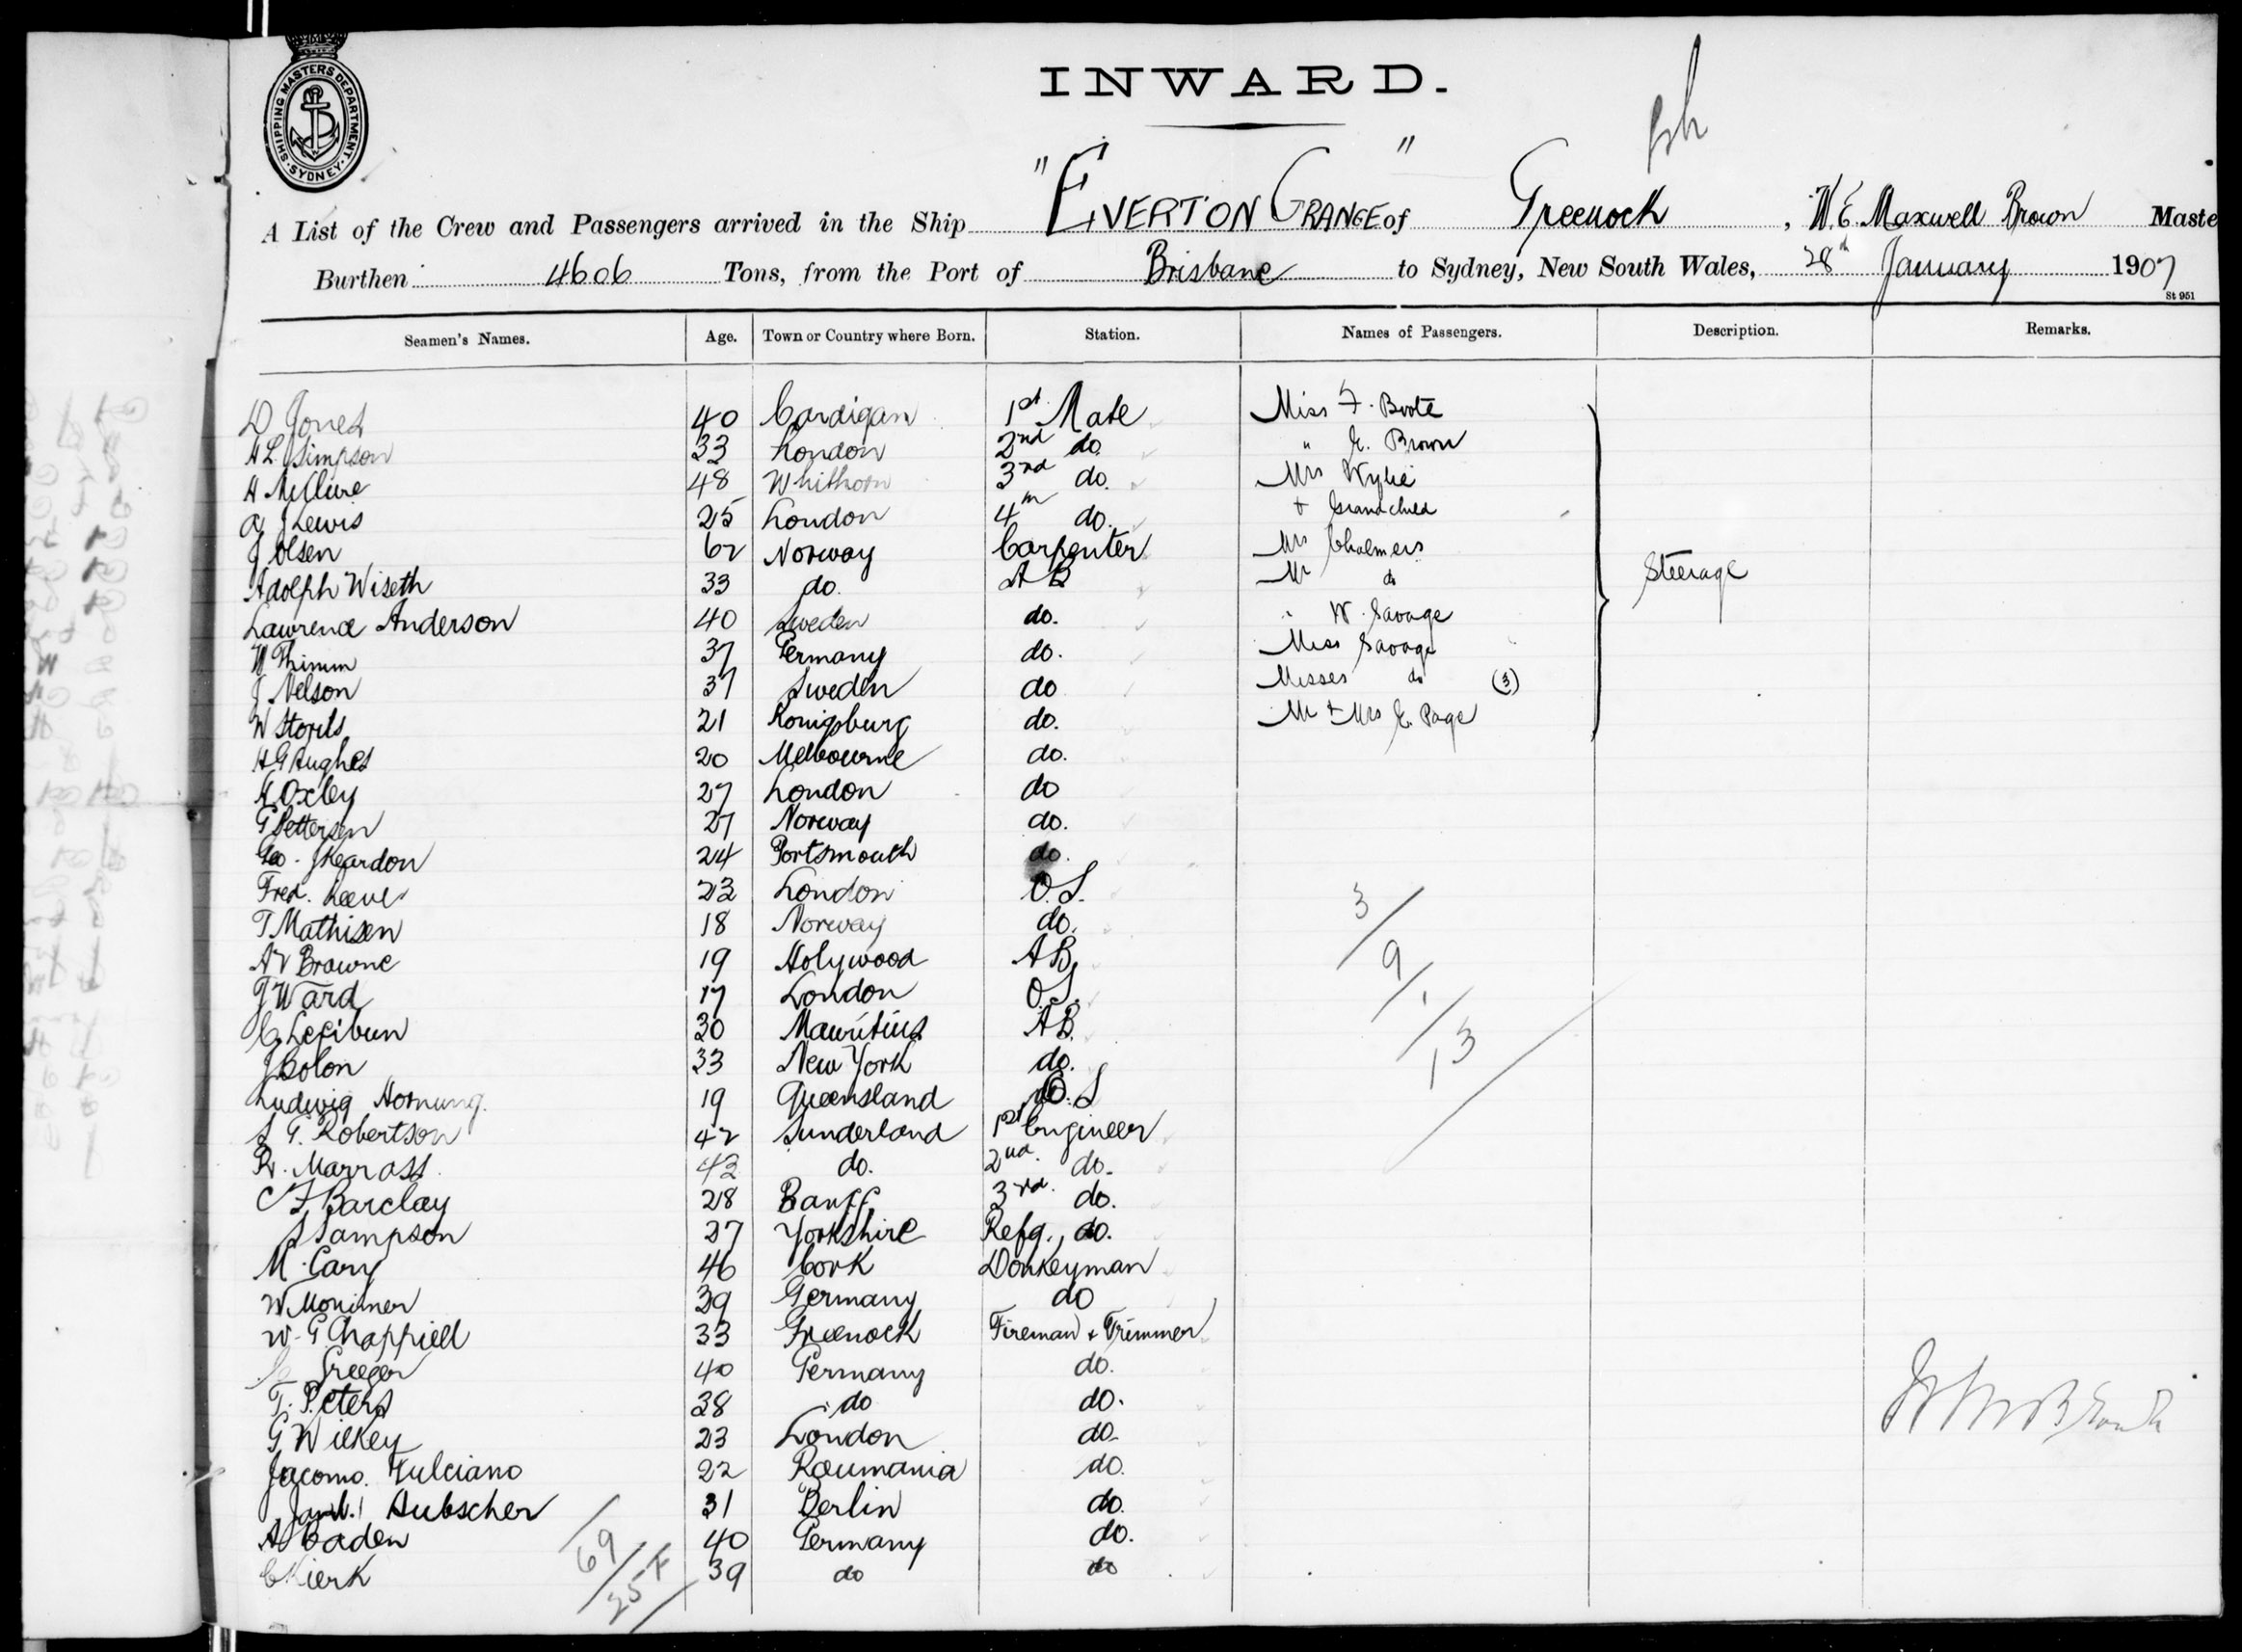 SHIPPING MASTERS DEPARTMENT. SYDNEY.
INWARD.
A List of the Crew and Passengers arrived in the Ship "EVERTON GRANGE" of Greenock, W. E. Maxwell Brown Maste
Burthen 4606 Tons, from the Port of Brisbane to Sydney, New South Wales, 28th January 1907
St 951
Seamen's Names. Age. Town or Country where Born. Station. Names of Passengers. Description. Remarks.
D Jones 40 Cardigan 1st Mate Miss F. Boote
H L Simpson 33 London 2nd do " E. Brown
H McClure 48 Whithorn 3rd do. Mrs Wylie
A J Lewis 25 London 4th do. + Grandchild
J Olsen 62 Norway Carpenter Mrs Chalmers
Adolph Wiseth 33 do. AB Mr do Steerage
Lawrence Anderson 40 Sweden do. " W. Savage
W Thimm 37 Germany do. Miss Savage
J Nelson 37 Sweden do Misses do (3)
W 21 Konigsburg do. Mr + Mrs E. Page
H G Hughes 20 Melbourne do.
H Oxley 27 London do
G Pettersen 27 Norway do.
Geo. J Reardon 24 Portsmouth do.
Fred. Reeves 23 London O.S.
T Mathisen 18 Norway do.
A V Browne 19 Holywood AB
J Ward 17 London O.S.
C 30 Mauritius AB.
J Bolon 33 New York do.
Ludwig Hornung. 19 Queensland O.S
S G. Robertson 42 Sunderland 1st Engineer
R. Marrass. 43 do. 2nd. do.
C F Barclay 28 Banff 3rd. do.
S Sampson 27 Yorkshire Refg., do.
M. Cary 46 Cork Donkeyman
W Morimer 39 Germany do
W. G. Chappiell 33 Greenock Fireman + Trimmer
Greeger 40 Germany do.
T. Peters 38 do do.
G Wilkey 23 London do.
Jacomo. Vulciano 22 Roumania do.
Hubscher 31 Berlin do.
A Baden 40 Germany do.
C Kierk 39 do do
3/9/1/13
69/35 F